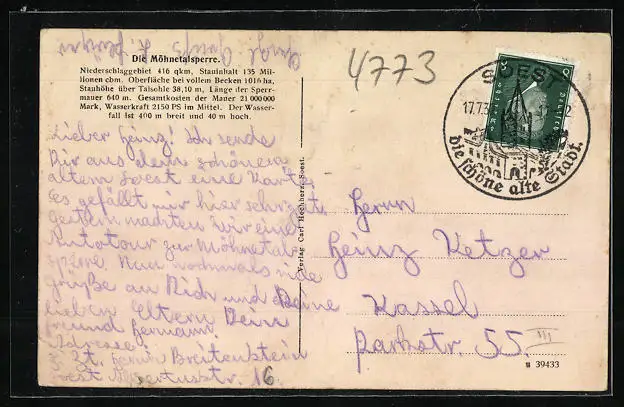 Die Möhnetalsperre.
Niederschlaggebiet 416 qkm, Stauinhalt 135 Mil-
lionen cbm. Oberfläche bei vollem Becken 1016 ha,
Stauhöhe über Talsohle 38,10 m, Länge der Sperr-
mauer 640 m. Gesamtkosten der Mauer 21 000 000
Mark, Wasserkraft 2150 PS im Mittel. Der Wasser-
fall ist 400 m breit und 40 m hoch.
Lieber Heinz! Ich sende
Dir aus dem schönen
altem Soest eine Karte.
Es gefällt mir hier sehr gut.
Gestern machten wir eine
Autotour zur Möhnetal-
sperre. Nun nochmals viele
Grüße an Dich und Deine
lieben Eltern Dein
Freund Hermann.
Adresse:
z. Zt. Herrn Breitenstein
Soest 16
4773
SOEST
17.7.3
die schöne alte Stadt.
Verlag Carl Hochherz, Soest.
Herrn
Heinz Ketzer
Kassel
Parkstr. 55. III
39433